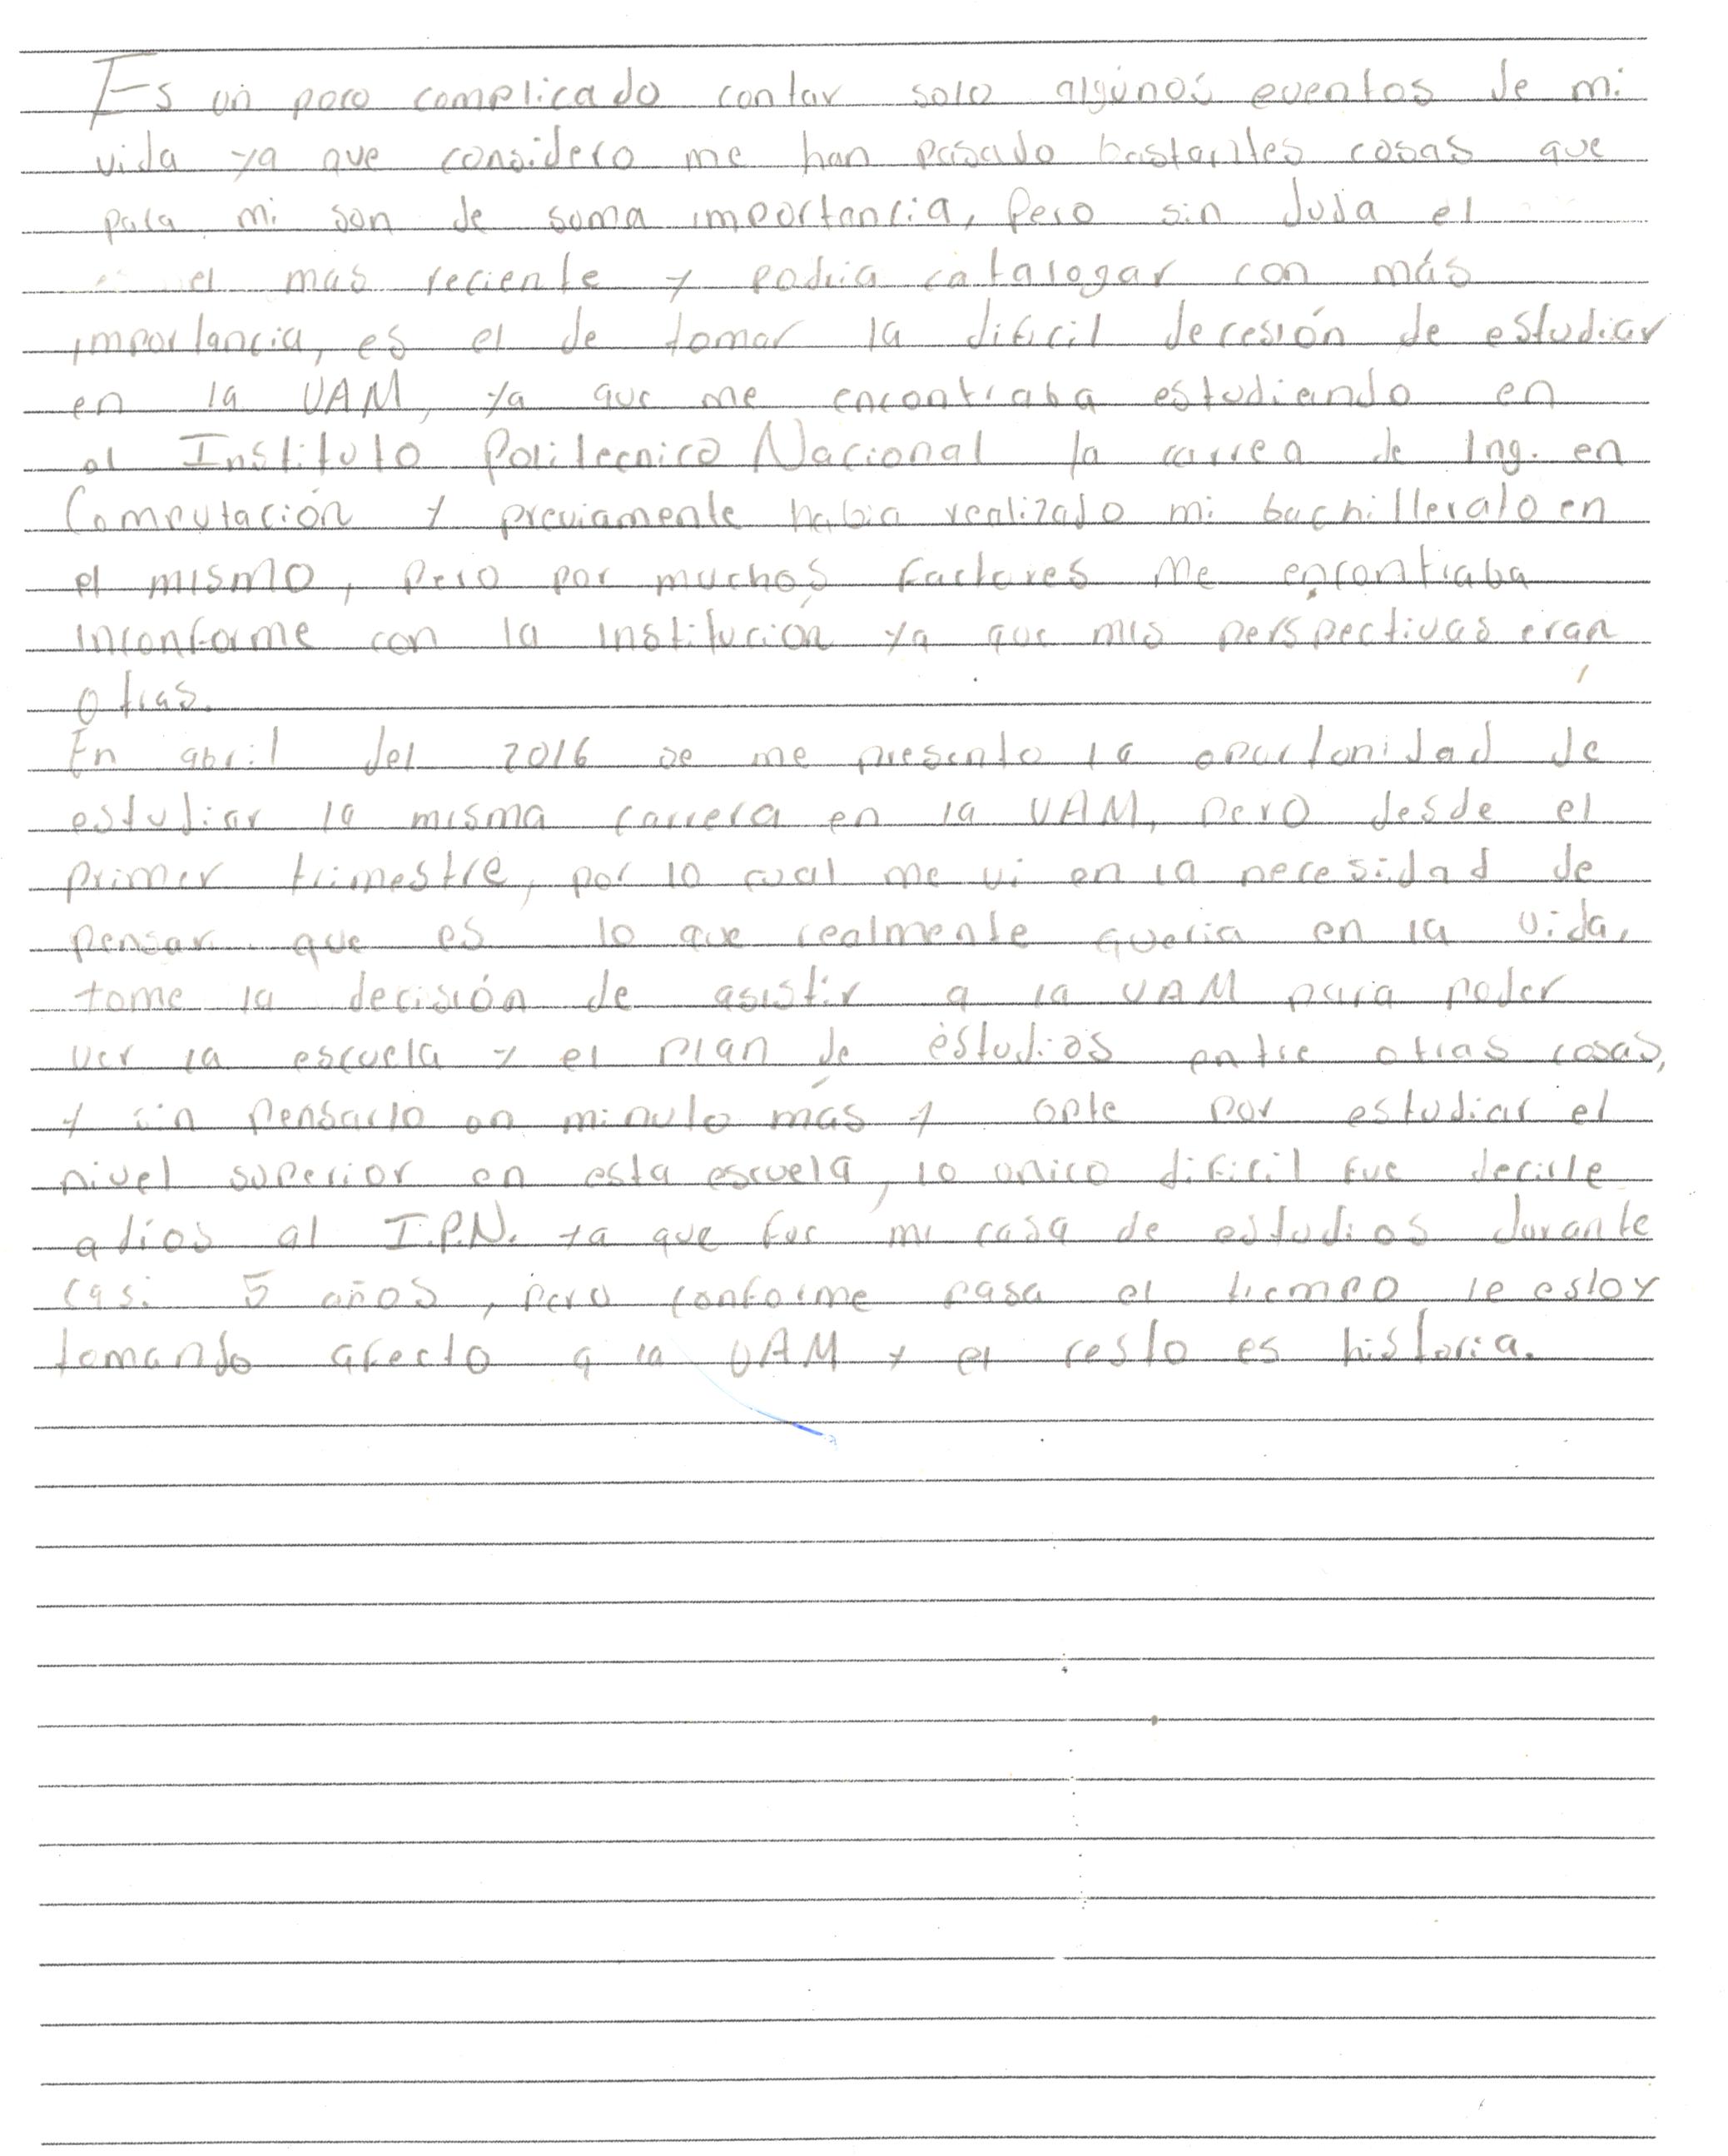 Es un poco complicado contar solo algunos eventos de mi
vida ya que considero me han pasado bastantes cosas que
para mi son de suma importancia, pero sin duda el
el mas reciente y podria catalogar con más
importancia, es el de tomar la dificil decesión de estudiar
en la UAM, ya que me encontraba estudiando en
el Instituto Politecnico Nacional la carrea de Ing. en
Computación y previamente habia realizado mi bachillerato en
el mismo, pero por muchos factores me encontraba
inconforme con la institución ya que mis perspectivas eran
otras.
En abril del 2016 se me presento la oportunidad de
estudiar la misma carrera en la UAM, pero desde el
primer trimestre, por lo cual me vi en la necesidad de
pensar que es lo que realmente queria en la vida,
tome la decisión de asistir a la UAM para poder
ver la escuela y el plan de estudios entre otras cosas,
y sin pensarlo un minuto más y opte por estudiar el
nivel superior en esta escuela, lo unico dificil fue decirle
adios al I.P.N. ya que fue mi casa de estudios durante
casi 5 años, pero conforme pasa el tiempo le estoy
tomando afecto a la UAM y el resto es historia.